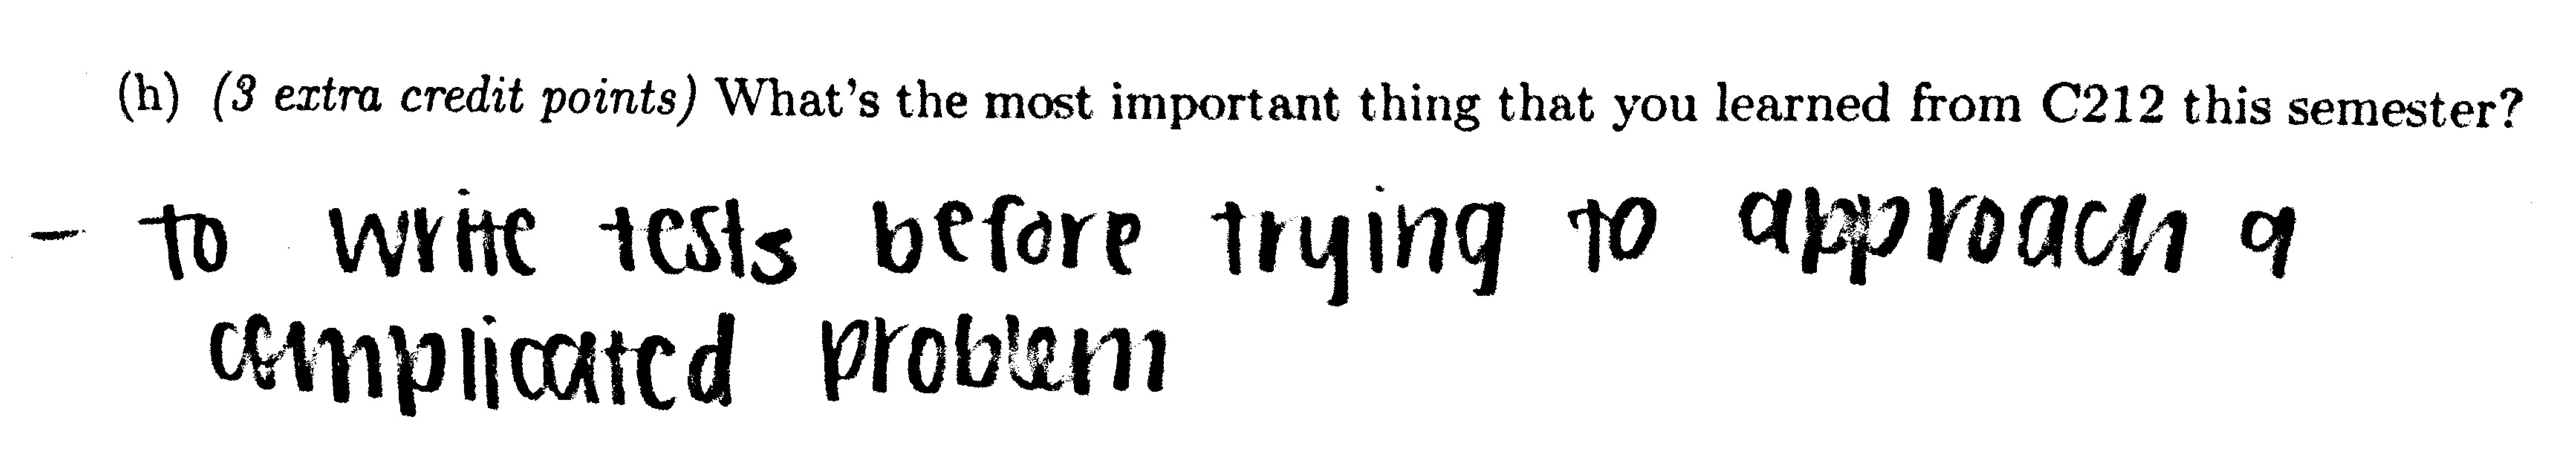 (h) (3 extra credit points) What's the most important thing that you learned from C212 this semester?
- to write tests before trying to approach a
complicated problem